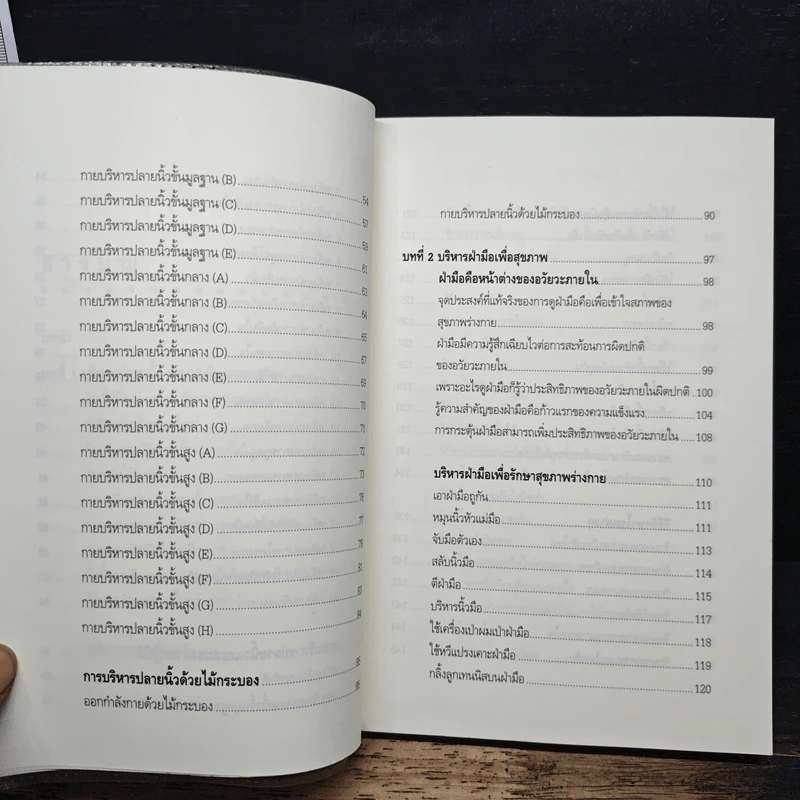 กายบริหารปลายนิ้วขั้นมูลฐาน (B) 54
กายบริหารปลายนิ้วขั้นมูลฐาน (C) 57
กายบริหารปลายนิ้วขั้นมูลฐาน (D) 59
กายบริหารปลายนิ้วขั้นมูลฐาน (E) 61
กายบริหารปลายนิ้วขั้นกลาง (A) 63
กายบริหารปลายนิ้วขั้นกลาง (B) 64
กายบริหารปลายนิ้วขั้นกลาง (C) 66
กายบริหารปลายนิ้วขั้นกลาง (D) 67
กายบริหารปลายนิ้วขั้นกลาง (E) 69
กายบริหารปลายนิ้วขั้นกลาง (F) 70
กายบริหารปลายนิ้วขั้นกลาง (G) 71
กายบริหารปลายนิ้วขั้นสูง (A) 72
กายบริหารปลายนิ้วขั้นสูง (B) 73
กายบริหารปลายนิ้วขั้นสูง (C) 76
กายบริหารปลายนิ้วขั้นสูง (D) 77
กายบริหารปลายนิ้วขั้นสูง (E)
กายบริหารปลายนิ้วขั้นสูง (F) 81
กายบริหารปลายนิ้วขั้นสูง (G)
กายบริหารปลายนิ้วขั้นสูง (H)
การบริหารปลายนิ้วด้วยไม้กระบอง
ออกกำลังกายด้วยไม้กระบอง
กายบริหารปลายนิ้วด้วยไม้กระบอง 90
บทที่ 2 บริหารฝ่ามือเพื่อสุขภาพ 97
ฝ่ามือคือหน้าต่างของอวัยวะภายใน 98
จุดประสงค์ที่แท้จริงของการดูฝ่ามือคือเพื่อเข้าใจสภาพของ
สุขภาพร่างกาย 98
ฝ่ามือมีความรู้สึกเฉียบไวต่อการสะท้อนการผิดปกติ
ของอวัยวะภายใน 99
เพราะอะไรดูฝ่ามือก็รู้ว่าประสิทธิภาพของอวัยวะภายในผิดปกติ 100
รู้ความสำคัญของฝ่ามือคือก้าวแรกของความแข็งแรง 104
การกระตุ้นฝ่ามือสามารถเพิ่มประสิทธิภาพของอวัยวะภายใน 108
บริหารฝ่ามือเพื่อรักษาสุขภาพร่างกาย 110
เอาฝ่ามือถูกัน 111
หมุนนิ้วหัวแม่มือ 111
จับมือตัวเอง 113
สลับนิ้วมือ 114
ตีฝ่ามือ 115
บริหารนิ้วมือ 117
ใช้เครื่องเป่าผมเป่าฝ่ามือ 118
ใช้หวีแปรงเคาะฝ่ามือ 119
กลิ้งลูกเทนนิสบนฝ่ามือ 120